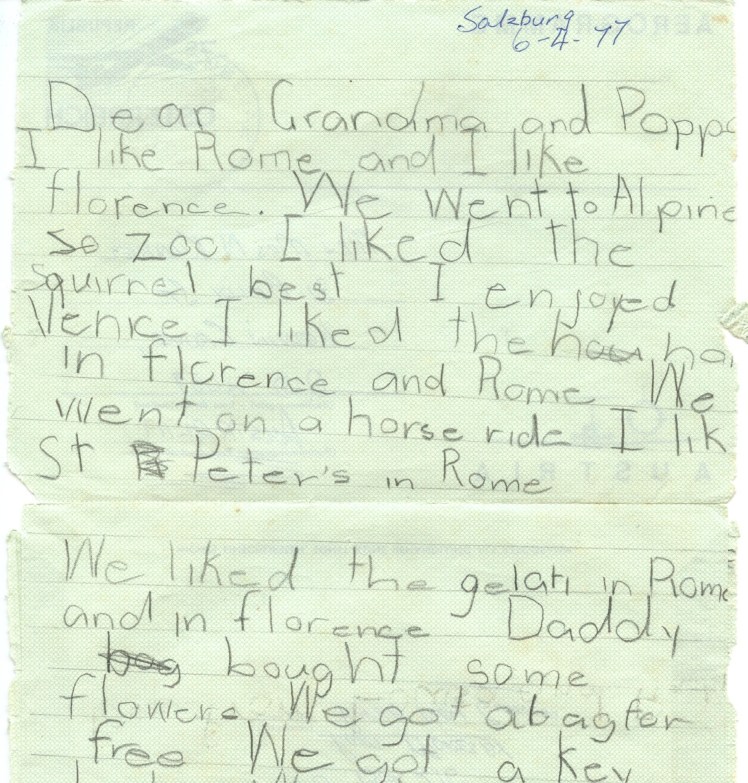 Salzburg
6-4-77
Dear Grandma and Poppa
I like Rome and I like
florence. We Went to Alpine
so zoo I liked the
squirrel best I enjoyed
Venice I liked the
in florence and Rome We
went on a horse ride I lik
St Peter's in Rome
We liked the gelati in Rome
and in florence Daddy
bought some
flowers We got a bag for
free We got a key